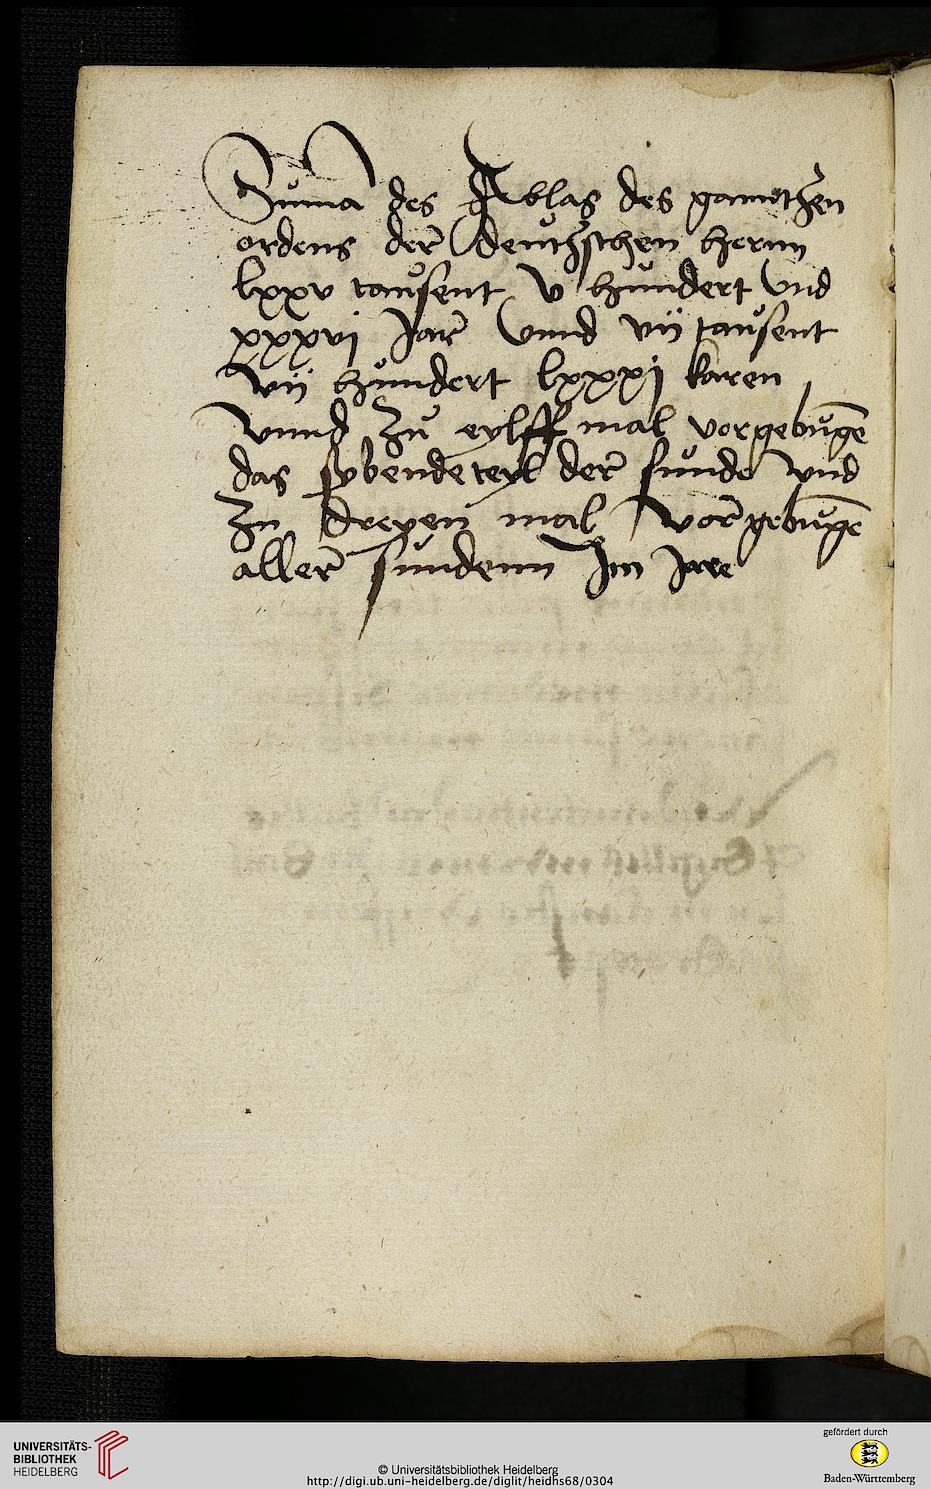 Suma des Ablas des gantczen
ordens der deutzschen hernn
lxxv tausent v hundert vnd
xxxvj Jar vnnd vij tausent
vij hundert lxxxj karen
vnnd zu eylff mal vorgebuge
das sybendeteyl der sunde vnd
zu dreyen mal vorgebuge
aller sundenn Im Jare
UNIVERSITÄTS-
BIBLIOTHEK
HEIDELBERG
© Universitätsbibliothek Heidelberg
http://digi.ub.uni-heidelberg.de/diglit/heidhs68/0304
gefördert durch
Baden-Württemberg